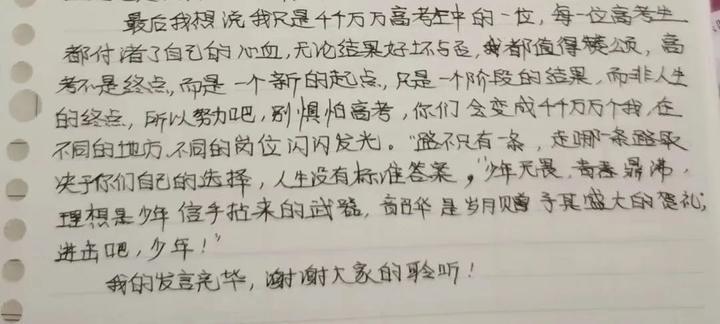 最后我想说我只是千千万万高考生中的一位，每一位高考生
都付诸了自己的心血，无论结果好坏与否，都值得赞颂，高
考不是终点，而是一个新的起点，只是一个阶段的结果，而非人生
的终点，所以努力吧，别惧怕高考，你们会变成千千万万个我，在
不同的地方、不同的岗位闪闪发光。“路不只有一条，走哪一条路取
决于你们自己的选择，人生没有标准答案，”少年无畏，青春鼎沸，
理想是少年信手拈来的武器，韶华是岁月赠予其盛大的贺礼；
进击吧，少年！”
我的发言完毕，谢谢大家的聆听！